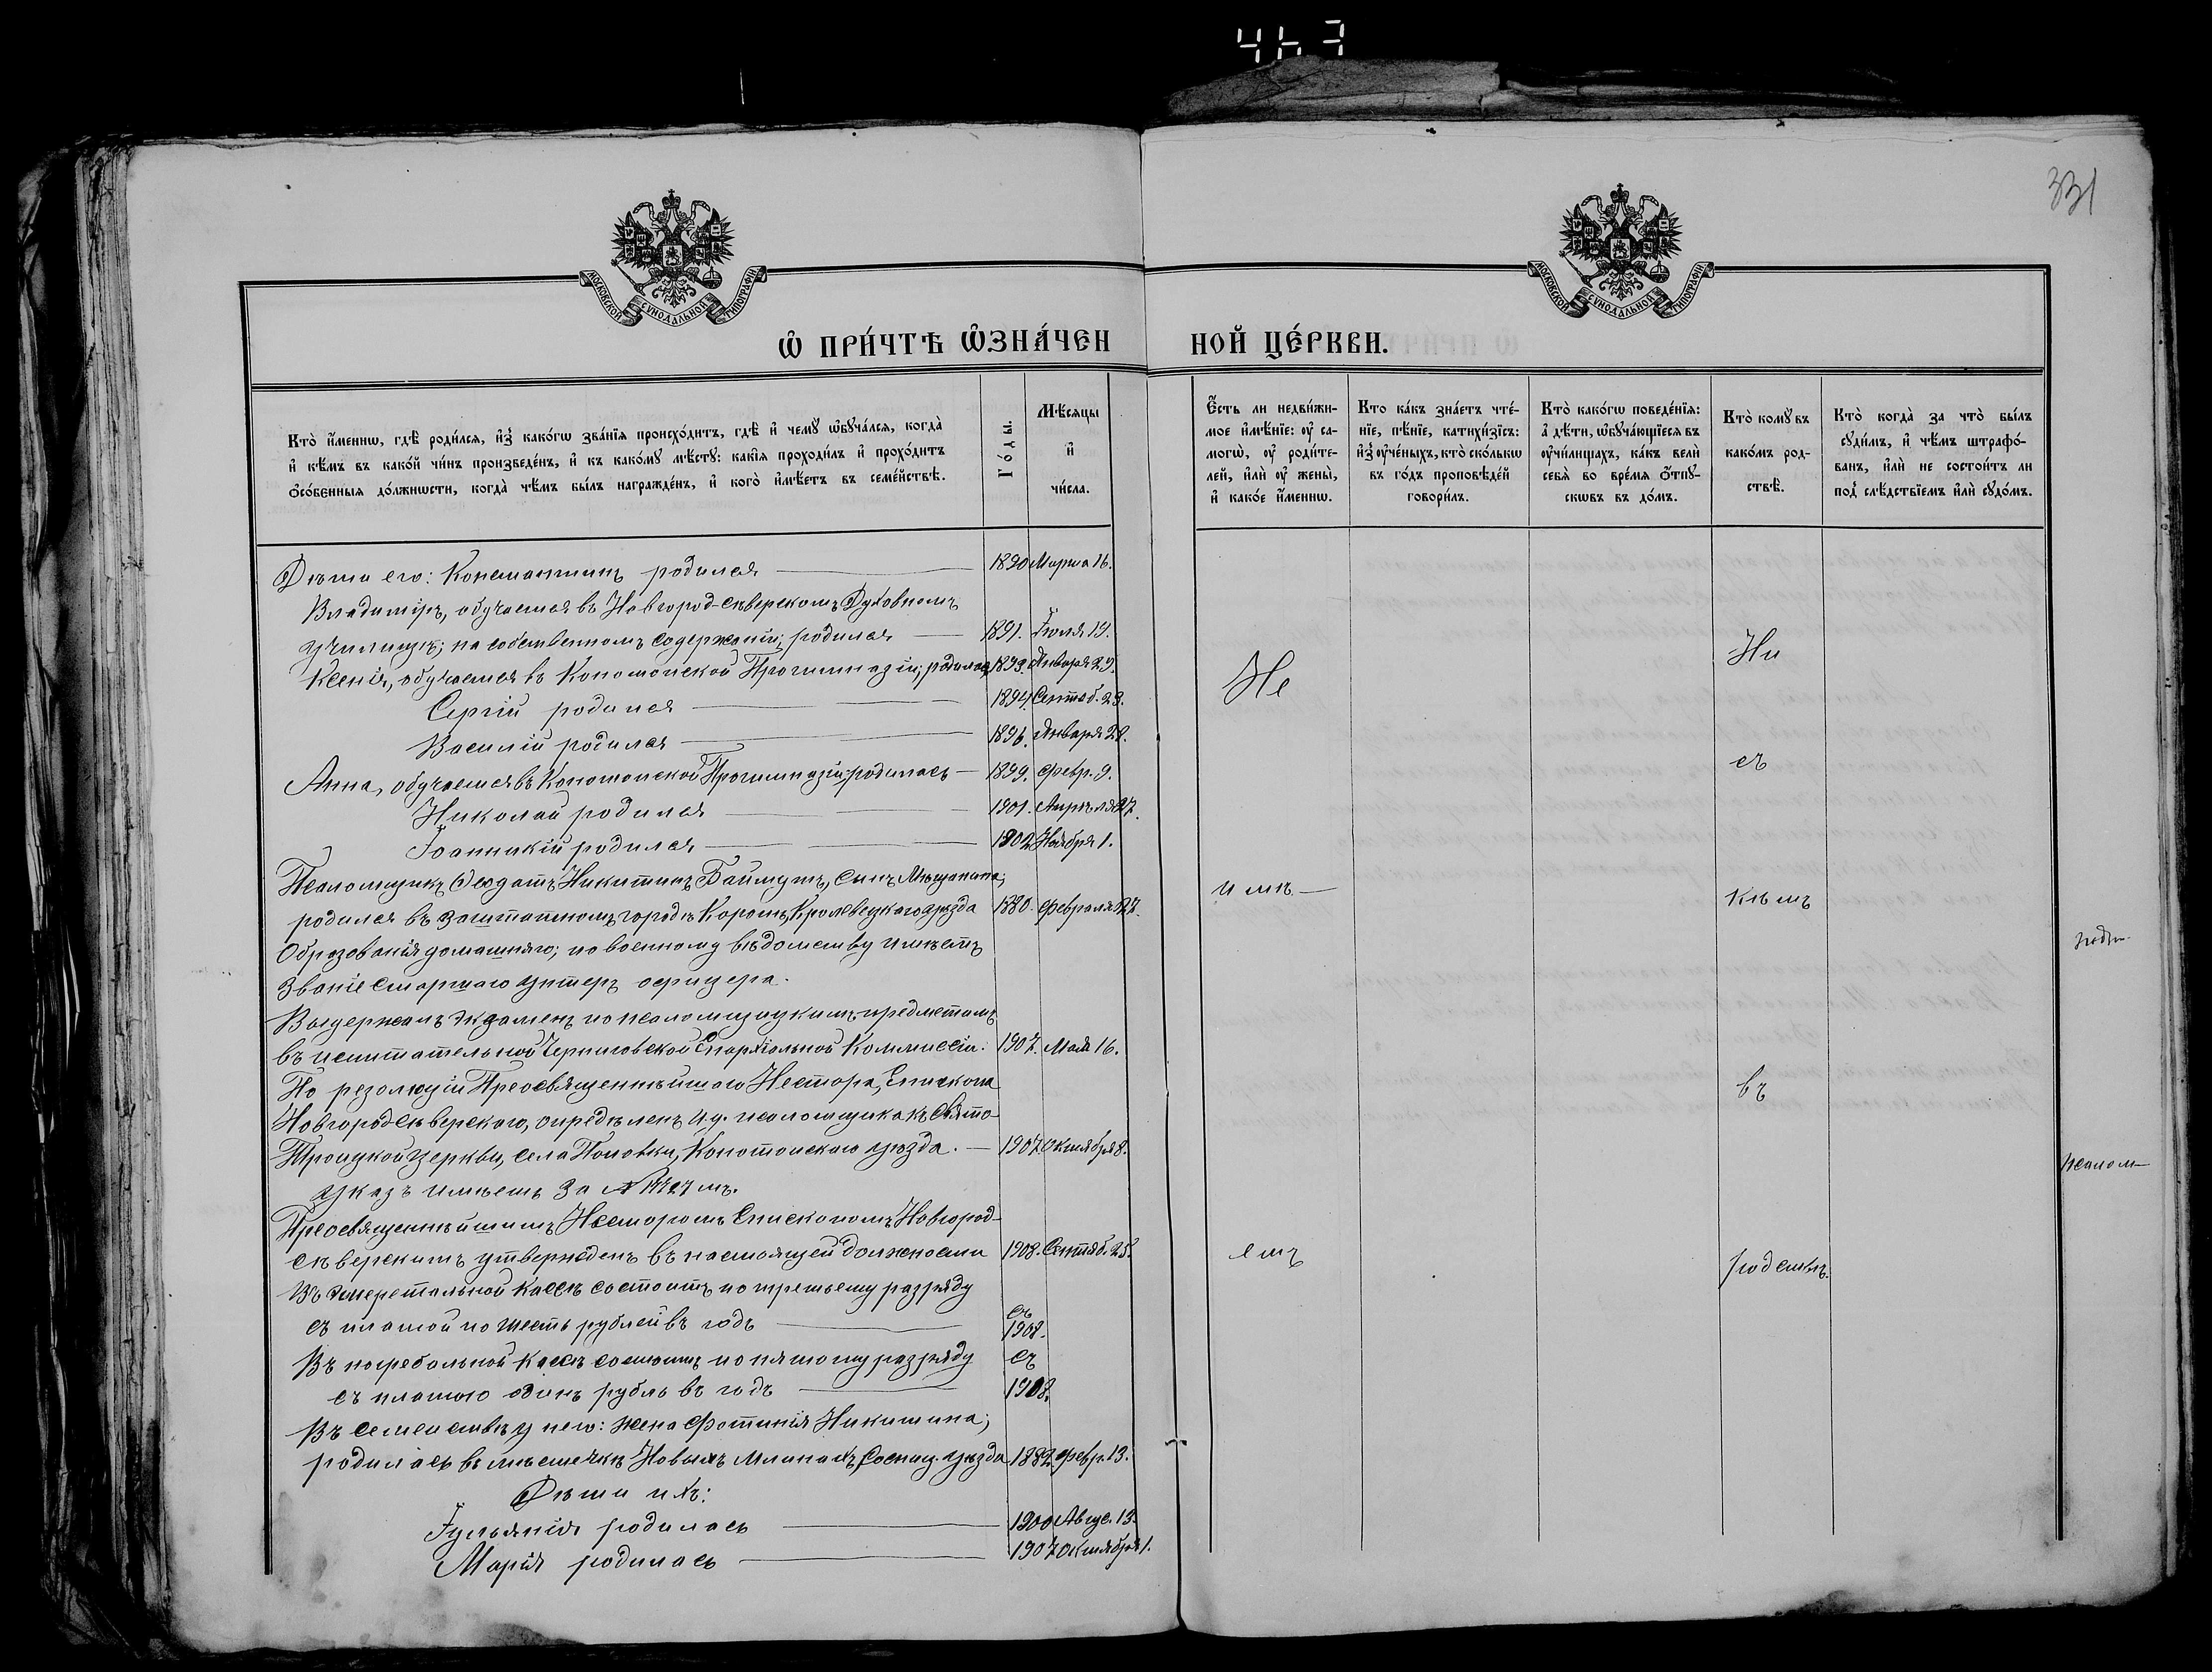 331
МОСКОВСКОЙ СѴНОДАЛЬНОЙ ТИПОГРАФІИ
МОСКОВСКОЙ СѴНОДАЛЬНОЙ ТИПОГРАФІИ
Ѡ ПРИ́ЧТѢ ѠЗНА́ЧЕННОЙ ЦЕ́РКВИ.
Кто̀ и҆́менно, гдѣ̀ роди́лся, и҆з̾ како́гѡ зва́нїѧ происхо́дитъ, гдѣ̀ и҆ чемꙋ̀ ѡ҆бꙋча́лся, когда̀
и҆ кѣ́мъ въ како́й чи́нъ произведе́нъ, и҆ къ како́мꙋ мѣ́стꙋ: какі̑я проходи́лъ и҆ прохо́дитъ
ѻ҆со́бенныя до́лжности, когда̀ чѣ́мъ бы́лъ награжде́нъ, и҆ кого̀ и҆мѣ́етъ въ семе́йствѣ.
Го́ды.
Мѣ́сяцы
и҆
чи́сла.
Е҆́сть ли недви́жи-
мое и҆мѣ́нїе: ᲂу҆ са-
могѡ̀, ᲂу҆ роди́те-
лей, и҆лѝ ᲂу҆ жены̀,
и҆ како́е и҆́менно.
Кто ка́къ зна́етъ чте́-
нїе, пѣ́нїе, катихи́зїсъ:
и҆з̾ ᲂу҆че́ныхъ, кто̀ ско́лькѡ
въ го́дъ проповѣ́дей
говори́лъ.
Кто̀ како́гѡ поведе́нїѧ:
а҆ дѣ́ти, ѡ҆бꙋча́ющїеся въ
ᲂу҆чи́лищахъ, ка́къ велѝ
себѧ̀ во вре́мя ѿпꙋ-
сковъ въ до́мъ.
Кто̀ комꙋ̀ въ
како́мъ род-
ствѣ̀.
Кто̀ когда̀ за что̀ бы́лъ
сꙋди́мъ, и҆ чѣ́мъ штрафо́-
ванъ, и҆лѝ не состои́тъ ли
под̾ слѣ́дствїемъ и҆лѝ сꙋдо́мъ.
Дѣти его: Константинъ родился — 1890 Марта 16.
Владиміръ, обучается въ Новгород-Сѣверскомъ Духовномъ
училищѣ; на собственномъ содержаніи; родился — 1891. Іюля 19.
Ксенія, обучается въ Конотопской Прогимназіи; родилась 1893. Января 29.
Сергій родился — 1894. Сентяб. 23.
Василій родился — 1896. Января 28.
Анна, обучается въ Конотопской Прогимназіи; родилась — 1899. Февр. 9.
Николай родился — 1901. Апрѣля 27.
Іоанникій родился — 1902 Ноября 1.
Псаломщикъ Ѳеодотъ Никитинъ Баймутъ, сынъ Мѣщанина;
родился въ заштатномъ городѣ Коропъ, Кролевецкаго уѣзда 1880. Февраля 27.
Образованія домашняго; по военному вѣдомству имѣетъ
званіе старшаго унтеръ офицера.
Выдержалъ экзаменъ по псаломщицкимъ предметамъ
въ испытательной Черниговской Епархіальной Коммиссіи. 1907. Мая 16.
По резолюціи Преосвященнѣйшаго Нестора, Епископа
Новгородсѣверскаго, опредѣленъ и.д. псаломщика къ Свято-
Троицкой церкви, села Поповки, Конотопскаго уѣзда. — 1907 Октября 8.
Указъ имѣетъ за №
Преосвященнѣйшимъ Несторомъ Епископомъ Новгород-
сѣверскимъ утвержденъ въ настоящей должности 1908. Сентяб. 25.
Въ эмеретальной кассѣ состоитъ по третьему разряду
съ платой по шесть рублей въ годъ — съ 1908.
Въ погребальной кассѣ состоитъ по пятому разряду съ
съ платою одинъ рубль въ годъ — 1908.
Въ семействѣ у него: жена Фотинія Никитина;
родилась въ мѣстечкѣ Новыхъ Млинахъ, Сосниц. уѣзда 1882 Февр. 13.
Дѣти ихъ:
Іульянія родилась — 1900 Авгус. 13.
Марія родилась — 1907 Октября 1.
Не
имѣ—
етъ
Ни
съ
кѣмъ
въ
родствѣ.
псалом—